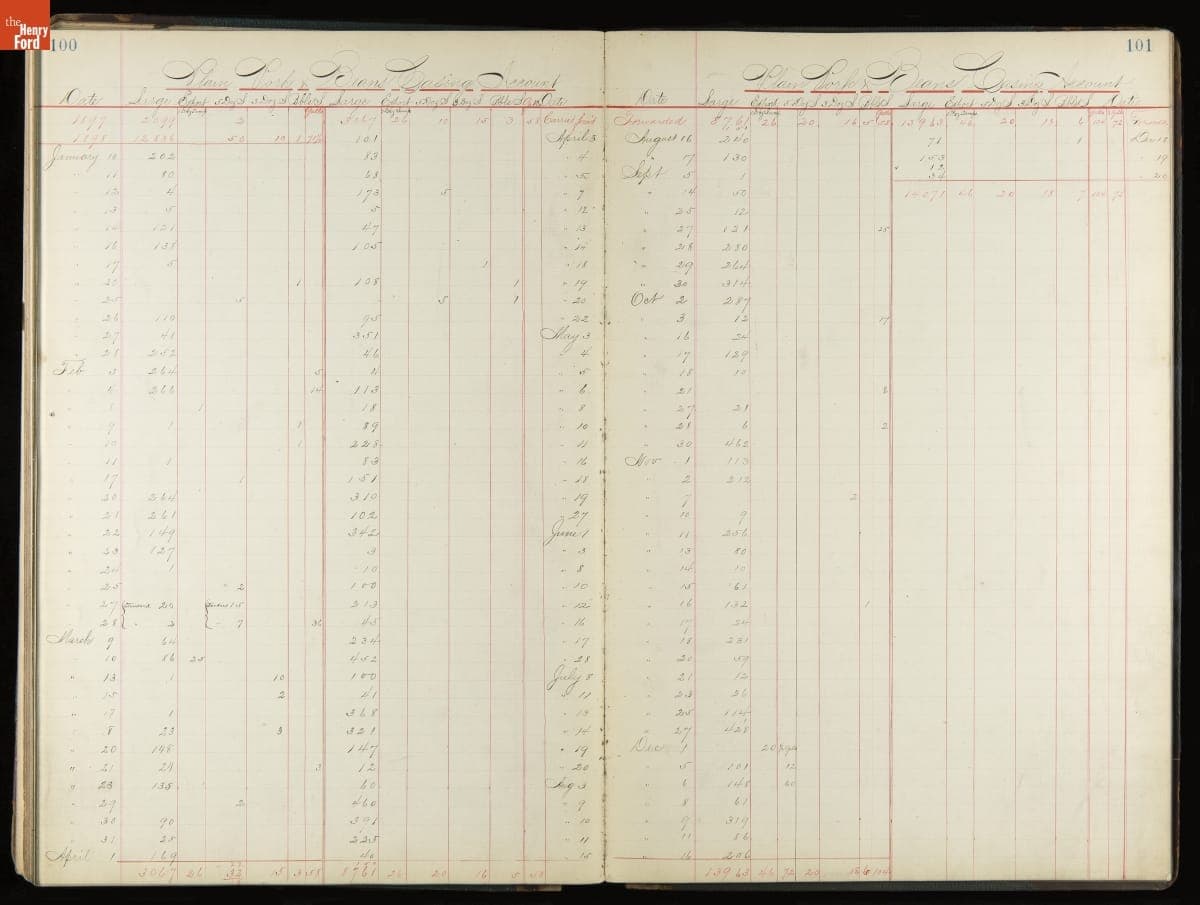 the Henry Ford
100
Plain Pork & Beans Casing Account
Date Large Large Date
1897 2999 2 3067 26 10 15 3 58 Carried Ford
1898 12836 50 10 101 April 3
January 10 202 83 " 4
" 11 80 63 " 5
" 12 4 173 5 " 7
" 13 5 5 " 12
" 14 121 47 " 13
" 16 138 105 " 14
" 17 5 1 " 18
" 20 1 108 1 " 19
" 25 5 5 1 " 20
" 26 110 95 " 22
" 27 41 351 May 3
" 28 252 46 " 4
Feb 3 264 5 11 " 5
" 4 266 14 113 " 6
1 18 " 8
" 9 1 1 89 " 10
" 10 1 228 " 11
" 11 1 83 " 16
" 17 1 151 " 18
" 20 264 310 " 19
" 21 261 102 " 27
" 22 149 342 June 1
" 23 127 3 " 3
" 24 1 10 " 8
" 25 2 100 " 10
" 27 20 15 213 " 12
" 28 " 2 " 7 36 45 " 16
March 9 64 234 " 17
" 10 86 25 452 " 28
" 13 1 10 100 July 8
" 15 2 41 " 11
" 17 1 368 " 13
" 8 23 3 321 " 14
" 20 148 147 " 19
" 21 24 3 12 " 20
" 23 135 60 Aug 3
" 29 2 460 " 9
" 30 90 391 " 10
" 31 25 225 " 11
April 1 169 40 " 15
3067 26 32 15 3 58 8761 26 20 16 5 58
101
Plain Pork & Beans Casing Account
Date Large Large Date
Forwarded 8761 26 20 16 5 58 13963 46 20 18 6 104 72
August 16 240 71 1 Dec 18
" 7 130 153 " 19
Sept 5 1 " 20
" 14 50 14071 46 20 18 7 104 72
" 25 12
" 27 121 25
" 28 280
" 29 264
" 30 314
Oct 2 287
" 3 12 17
" 16 24
" 17 129
" 18 10
" 21 8
" 27 21
" 28 6 2
" 30 462
Nov 1 113
" 2 212
" 7 2
" 10 9
" 11 256
" 13 80
" 14 10
" 15 61
" 16 132 1
" 17 24
" 18 231
" 20 59
" 21 12
" 23 26
" 25 114
" 27 428
Dec 1 20
" 5 101 12
" 6 148 60
" 8 61
" 9 319
" 11 86
" 16 296
13963 46 72 20 18 6 104